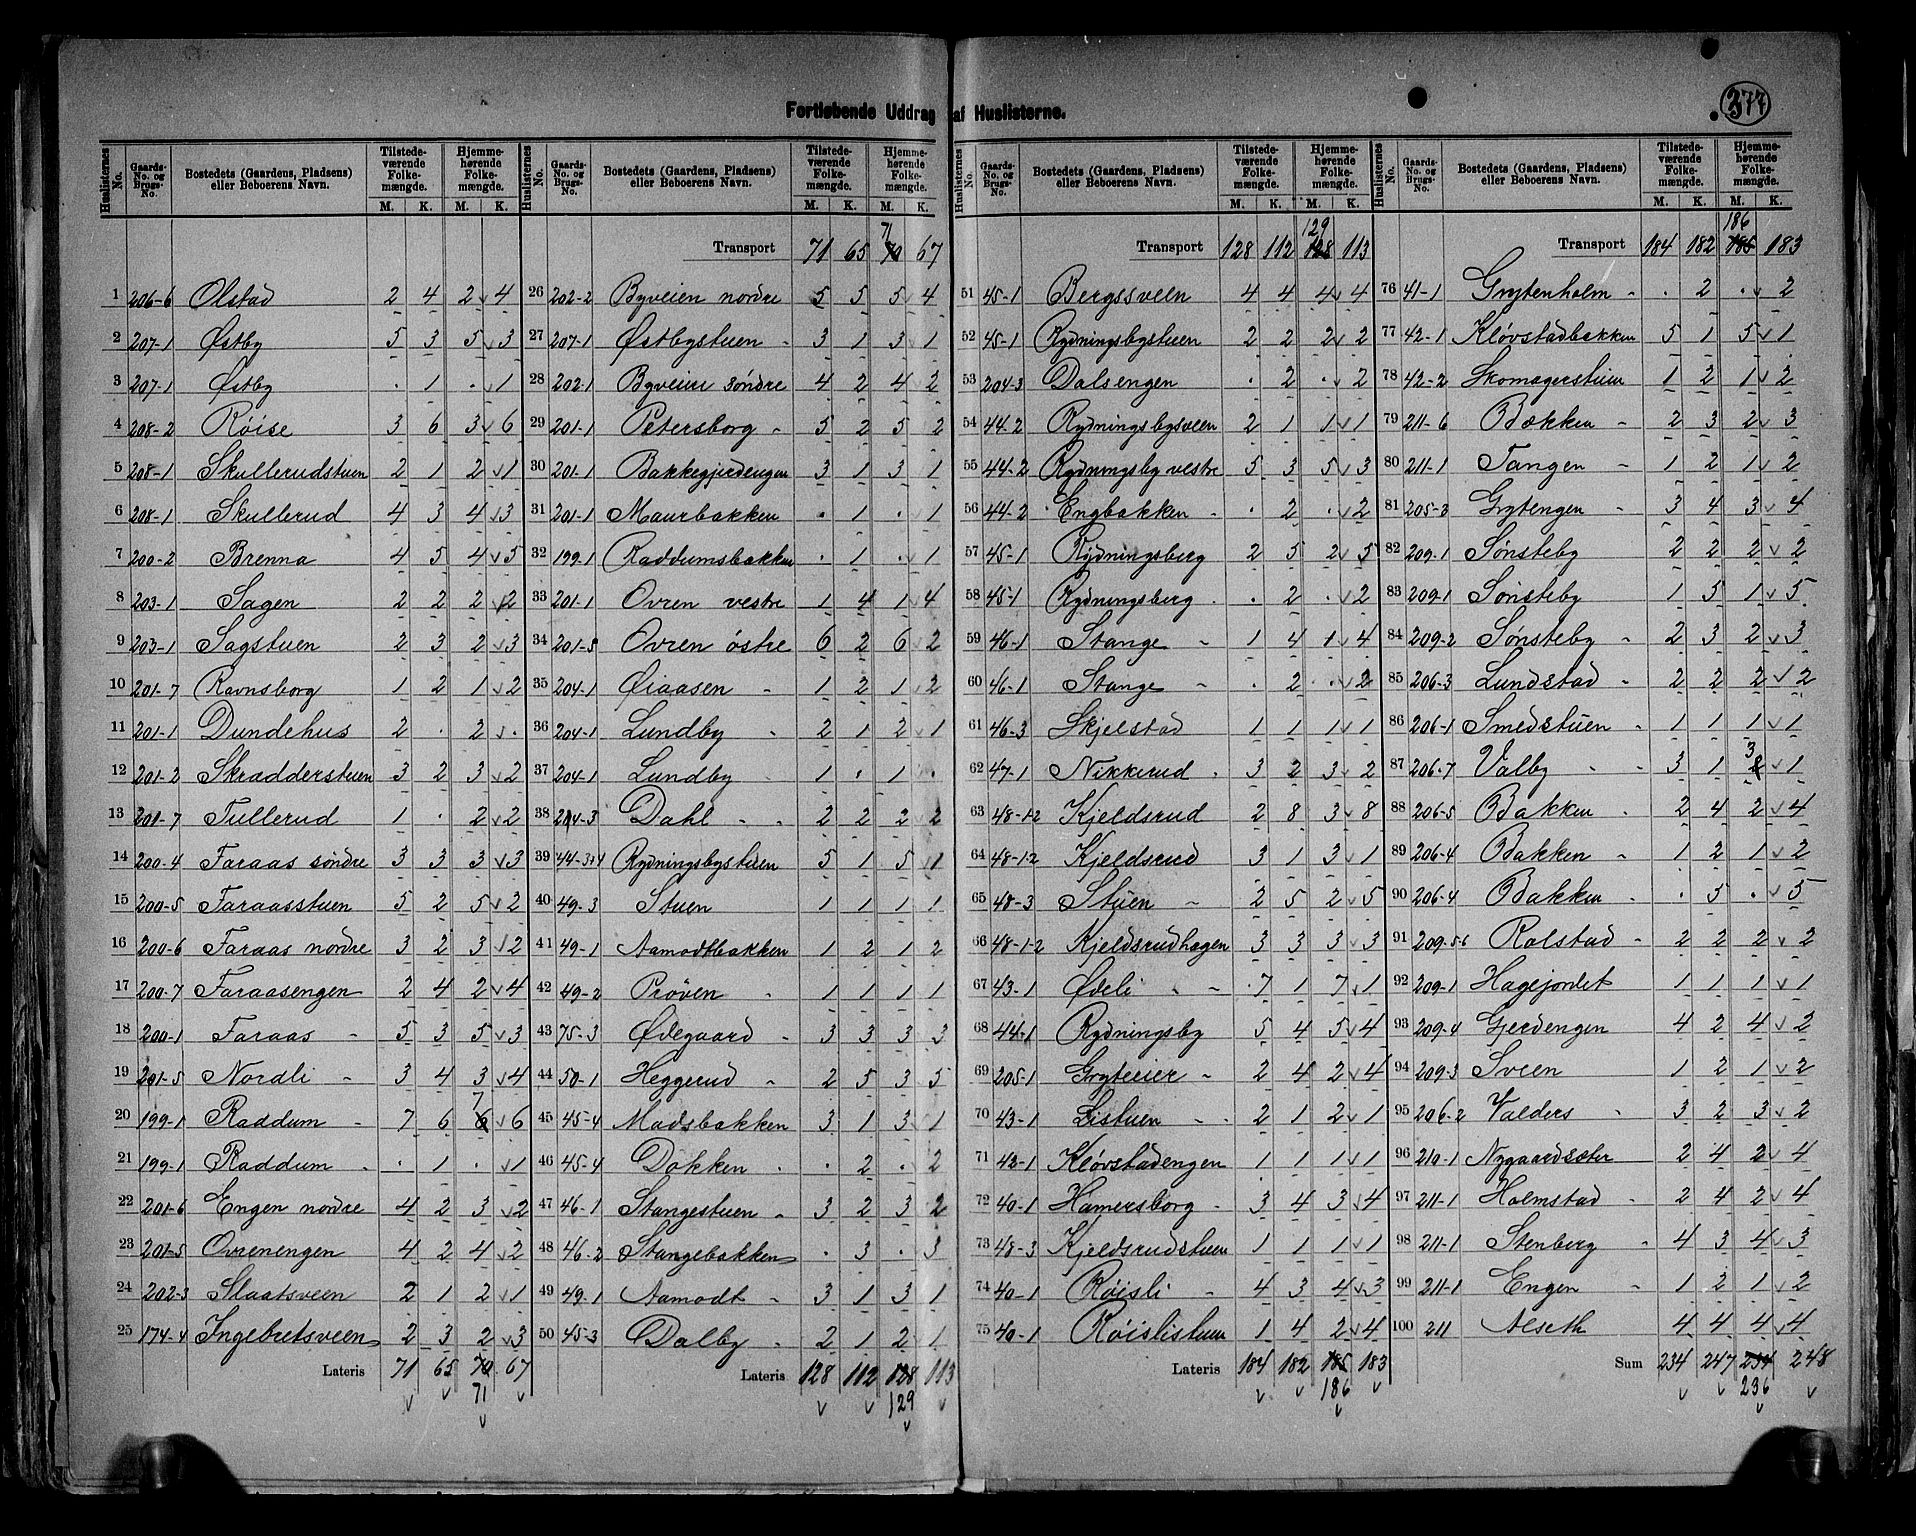 377
Fortløbende Uddrag af Huslisterne.
Huslisternes No. Gaards- No. og Brugs- No. Bostedets (Gaardens, Pladsens) eller Beboerens Navn. Tilstede- værende Folke- mængde. Hjemme- hørende Folke- mængde.
M. K. M. K.
1 206-6 Olstad 2 4 2 4
2 207-1 Østby 5 3 5 3
3 207-1 Østby . 1 . 1
4 208-2 Røise 3 6 3 6
5 208-1 Skullerudstuen 2 1 2 1
6 208-1 Skullerud 4 3 4 3
7 200-2 Brenna 4 5 4 5
8 203-1 Sagen 2 2 2 2
9 203-1 Sagstuen 2 3 2 3
10 201-7 Ravnsborg 1 2 1 2
11 201-1 Dundehus 2 . 2 .
12 201-2 Skradderstuen 3 2 3 2
13 201-7 Tullerud 1 . 2 2
14 200-4 Faraas søndre 3 3 3 3
15 200-5 Faraasstuen 5 2 5 2
16 200-6 Faraas nordre 3 2 3 2
17 200-7 Faraasengen 2 4 2 4
18 200-1 Faraas - 5 3 5 3
19 201-5 Nordli - 3 4 3 4
20 199-1 Raddum - 7 6 6 7 6
21 199-1 Raddum . . 1 . 1
22 201-6 Engen nordre 4 2 3 2
23 201-5 Ovrenengen 4 2 4 2
24 202-3 Slaatsveen 2 1 2 1
25 174-4 Ingebretsveen 2 3 2 3
Lateris 71 65 70 67
71
Huslisternes No. Gaards- No. og Brugs- No. Bostedets (Gaardens, Pladsens) eller Beboerens Navn. Tilstede- værende Folke- mængde. Hjemme- hørende Folke- mængde.
M. K. M. K.
Transport 71 65 70 71 67
26 202-2 Byveien nordre 5 5 5 4
27 207-1 Østbystuen - 3 1 3 1
28 202-1 Byveien søndre 4 2 4 2
29 201-1 Petersborg - 5 2 5 2
30 201-1 Bakkegjerdengen 3 1 3 1
31 201-1 Maurbakken . 1 . 1
32 199-1 Raddumsbakken . 1 . 1
33 201-1 Ovren vestre 1 4 1 4
34 201-5 Ovren østre 6 2 6 2
35 204-1 Øiaasen - 1 2 1 2
36 204-1 Lundby - 2 1 2 1
37 204-1 Lundby - 1 . 1 .
38 204-3 Dahl - - 2 2 2 2
39 44-3+4 Rydningsbystuen 5 1 5 1
40 49-3 Stuen 1 1 1 1
41 49-1 Aamodtbakken 1 2 1 2
42 49-2 Prøven - 1 1 1 1
43 75-3 Ødegaard - 3 3 3 3
44 50-1 Heggerud - 2 5 3 5
45 45-4 Madsbakken 3 1 3 1
46 45-4 Dokken . . 2 . 2
47 46-1 Stangestuen - 3 2 3 2
48 46-2 Stangebakken . 3 . 3
49 49-1 Aamodt - 3 1 3 1
50 45-3 Dalby - 2 1 2 1
Lateris 128 112 128 113
129
Huslisternes No. Gaards- No. og Brugs- No. Bostedets (Gaardens, Pladsens) eller Beboerens Navn. Tilstede- værende Folke- mængde. Hjemme- hørende Folke- mængde.
M. K. M. K.
Transport 128 112 128 129 113
51 45-1 Bergssveen 4 4 4 4
52 45-1 Rydningsbystuen 2 2 2 2
53 204-3 Dalsengen . 2 . 2
54 44-2 Rydningsbysveen 2 1 1 1
55 44-2 Rydningsby vestre 5 3 5 3
56 44-2 Engbakken - . 2 . 2
57 45-1 Rydningsberg 2 5 2 5
58 45-1 Rydningsberg . . 2 . 2
59 46-1 Stange - 1 4 1 4
60 46-1 Stange - . 2 . 2
61 46-3 Skjelstad 1 1 1 1
62 47-1 Nikkerud . 3 2 3 2
63 48-1-2 Kjeldsrud 2 8 3 8
64 48-1-2 Kjeldsrud 3 1 3 1
65 48-3 Stuen - 2 5 2 5
66 48-1-2 Kjeldsrudhagen 3 3 3 3
67 43-1 Ødeli - - 7 1 7 1
68 44-1 Rydningsby 5 4 5 4
69 205-1 Gryteeier - 2 4 2 4
70 43-1 Listuen - - 2 1 2 1
71 42-1 Kløvstadengen 1 1 1 1
72 40-1 Hamersborg - 3 4 3 4
73 48-3 Kjeldsrudstuen 1 1 1 1
74 40-1 Røisli - 4 3 4 3
75 40-1 Røislistuen 1 4 2 4
Lateris 184 182 185 183
186
Huslisternes No. Gaards- No. og Brugs- No. Bostedets (Gaardens, Pladsens) eller Beboerens Navn. Tilstede- værende Folke- mængde. Hjemme- hørende Folke- mængde.
M. K. M. K.
Transport 184 182 185 186 183
76 41-1 Grytenholm - . 2 . 2
77 42-1 Kløvstadbakken 5 1 5 1
78 42-2 Skomagerstuen 1 2 1 2
79 211-6 Bækken - 2 3 2 3
80 211-1 Tangen - 1 2 1 2
81 205-3 Grytengen - 3 4 3 4
82 209-1 Sønsteby 2 2 2 2
83 209-1 Sønsteby 1 5 1 5
84 209-2 Sønsteby - 2 3 2 3
85 206-3 Lundstad - 2 2 2 2
86 206-1 Smedstuen - 1 1 1 1
87 206-7 Valby - - 3 1 2 3 1
88 206-5 Bakken - 2 4 2 4
89 206-4 Bakken - 1 2 1 2
90 206-4 Bakken - . 5 . 5
91 209-5-6 Rolstad - 2 2 2 2
92 209-1 Hagejordet 1 1 1 1
93 209-4 Gjerdengen 4 2 4 2
94 209-3 Sveen 1 2 1 2
95 206-2 Valders - 3 2 3 2
96 210-1 Nygaardsæter 2 4 2 4
97 211-1 Holmstad - 2 4 2 4
98 211-1 Stenberg - 4 3 4 3
99 211-1 Engen - 1 2 1 2
100 211 Alseth 4 4 4 4
Sum 234 247 234 248
236